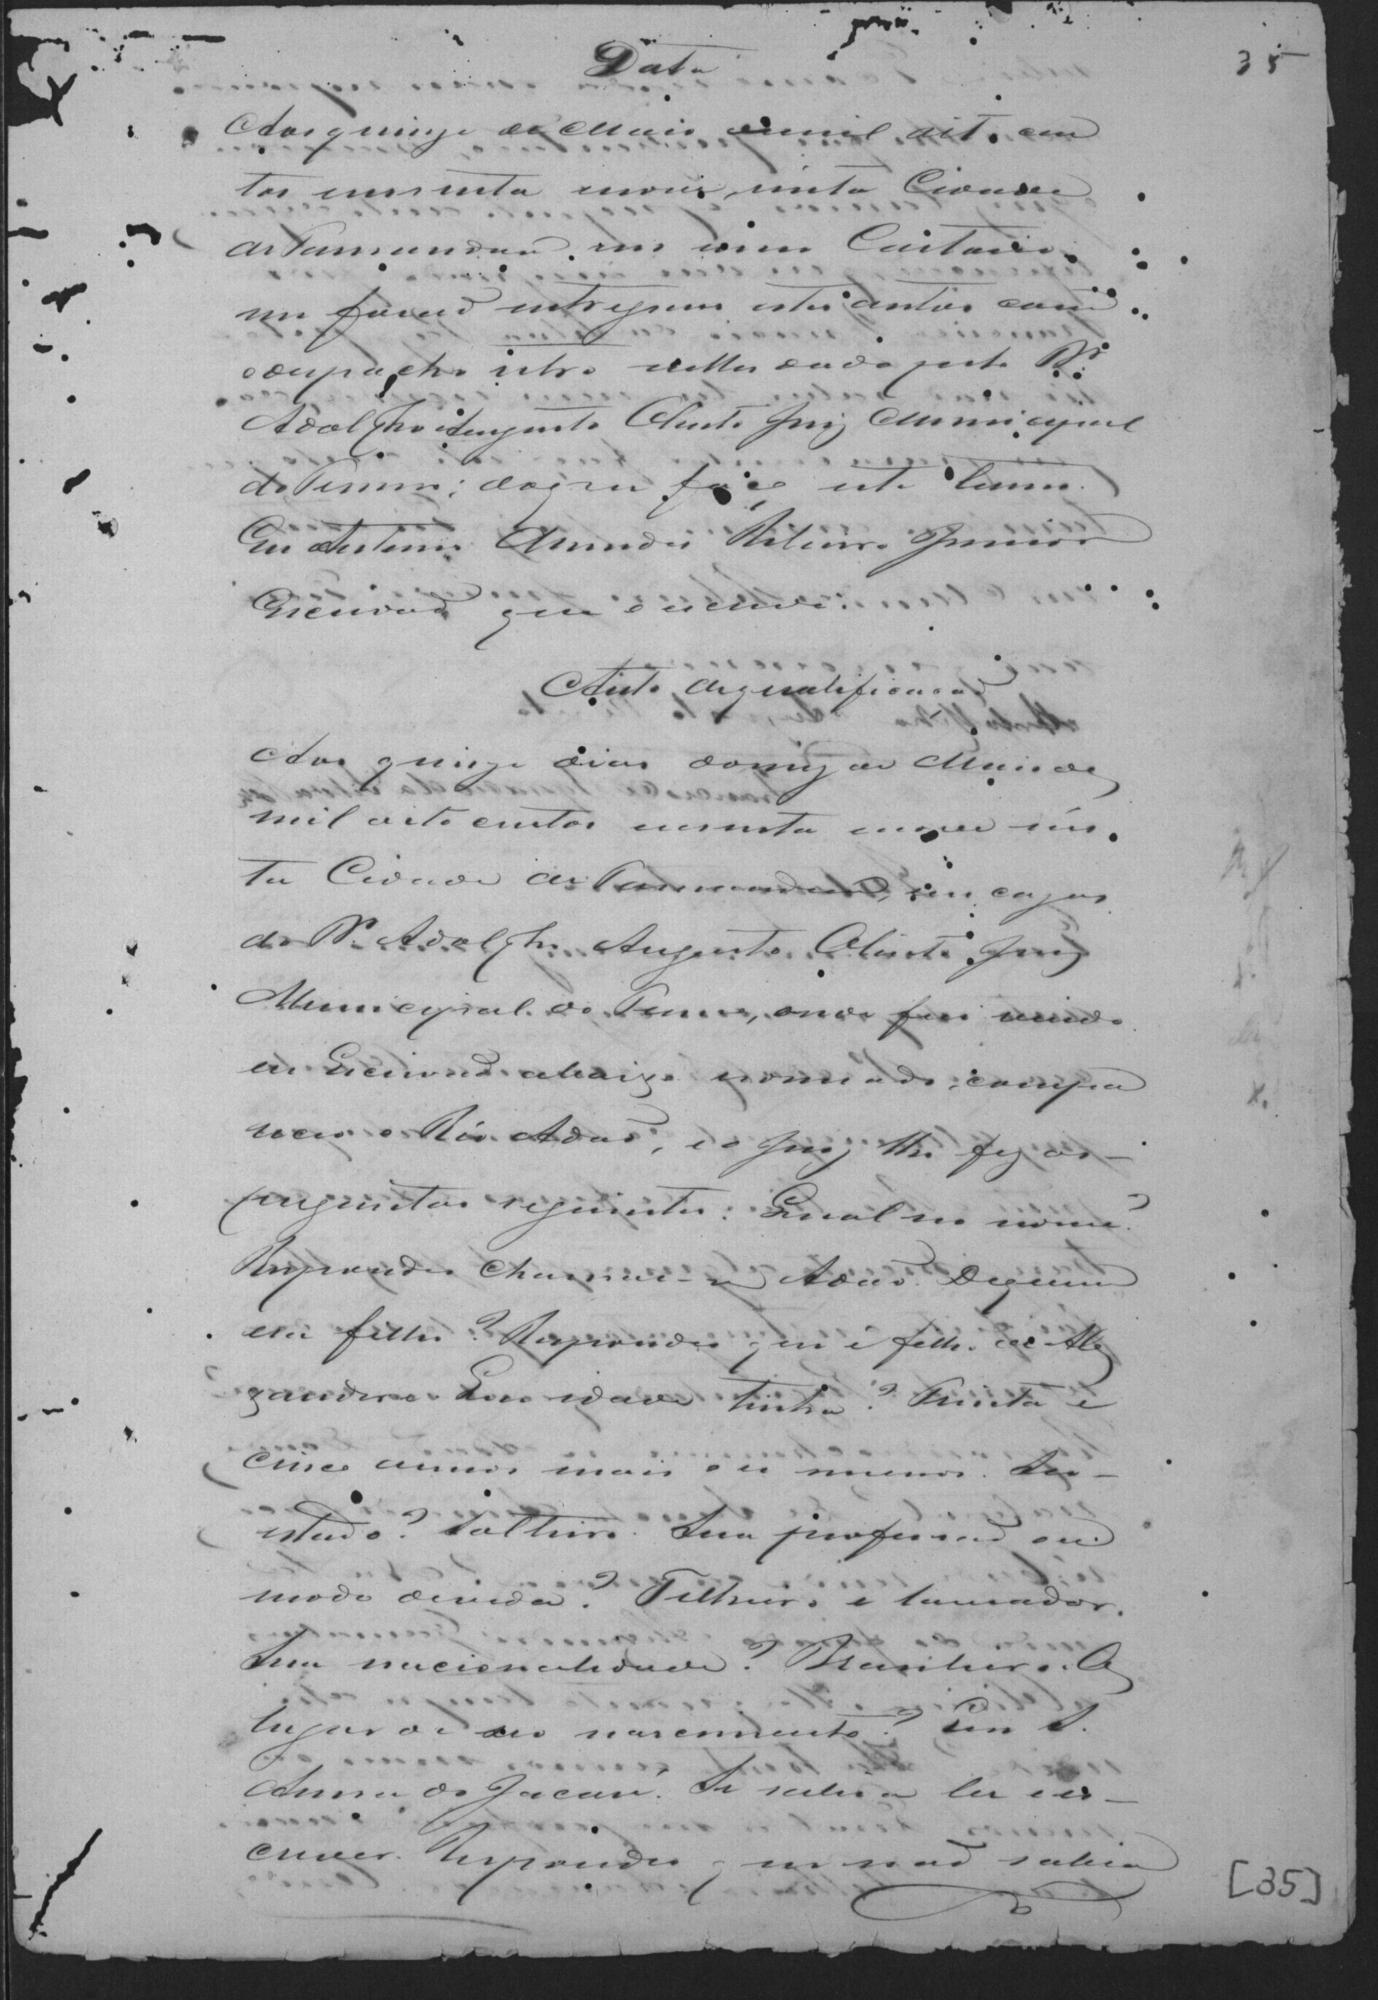 Data
35
Aos quinze de Maio de mil oito cen
tos sessenta e nove, nésta Cidade
de Tamanduá em meu Cartorio
me forão entregues estes autos com
o despacho retro n'elles dado pelo Dr.
Adolpho Augusto Olinto Juiz Municipal
do Termo; do que faço este termo.
Eu Antonio Ribeiro Junior
Escrivão que o escrevi.
Auto de qualificação
Aos quinze dias do mez de Maio de
mil oito centos sessenta e nove nés
ta Cidade de Tamanduá, em cazas
do Dr. Adolpho Augusto Olinto Juiz
Municipal do Termo, onde fui vindo
eu Escrivão abaixo nomeado, compa
receo o Réo Adão, e o Juiz lhe fez as
perguntas seguintes: Qual seo nome?
Respondeo chamar-se Adão. De quem
era filho? Respondeo que é filho de Ale
xandre. Que idade tinha? Trinta e
cinco annos mais ou menos. Seo
estado? Solteiro. Sua profissão ou
modo de vida? Telheiro e lavrador.
Sua nacionalidade? Brasileiro. O
lugar de seo nascimento? Em S.
Anna do Jacaré. Se sabia ler e es-
crever. Respondeo que não sabia
[35]